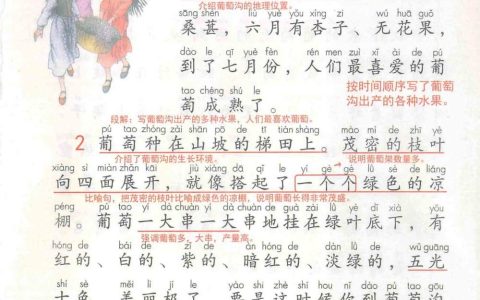 介绍葡萄沟的地理位置。
sāng shèn liù yuè yǒu xìng zi wú huā guǒ
桑葚，六月有杏子、无花果，
dào le qī yuè fèn rén men zuì xǐ ài de pú
到了七月份，人们最喜爱的葡
按时间顺序写了葡萄
沟出产的各种水果。
tao chéng shú le
萄成熟了。
段解：写葡萄沟出产的多种水果，人们最喜欢葡萄。
pú tao zhòng zài shān pō de tī tián shàng mào mì de zhī yè
2 葡萄种在山坡的梯田上。茂密的枝叶
介绍了葡萄沟的生长环境。
说明葡萄架数量多。
xiàng sì miàn zhǎn kāi jiù xiàng dā qǐ le yí gè gè lǜ sè de liáng
向四面展开，就像搭起了一个个绿色的凉
比喻句，把茂密的枝叶比喻成绿色的凉棚，说明葡萄长得非常茂盛。
péng pú tao yí dà chuàn yí dà chuàn de guà zài lǜ yè dǐ xià yǒu
棚。葡萄一大串一大串地挂在绿叶底下，有
强调葡萄多，大串，产量高。
hóng de bái de zǐ de àn hóng de dàn lǜ de wǔ guāng
红的、白的、紫的、暗红的、淡绿的，五光
shí sè měi lì jí le yào shì zhè shí hou nǐ dào pú tao gōu
十色，美丽极了。要是这时候你到葡萄沟